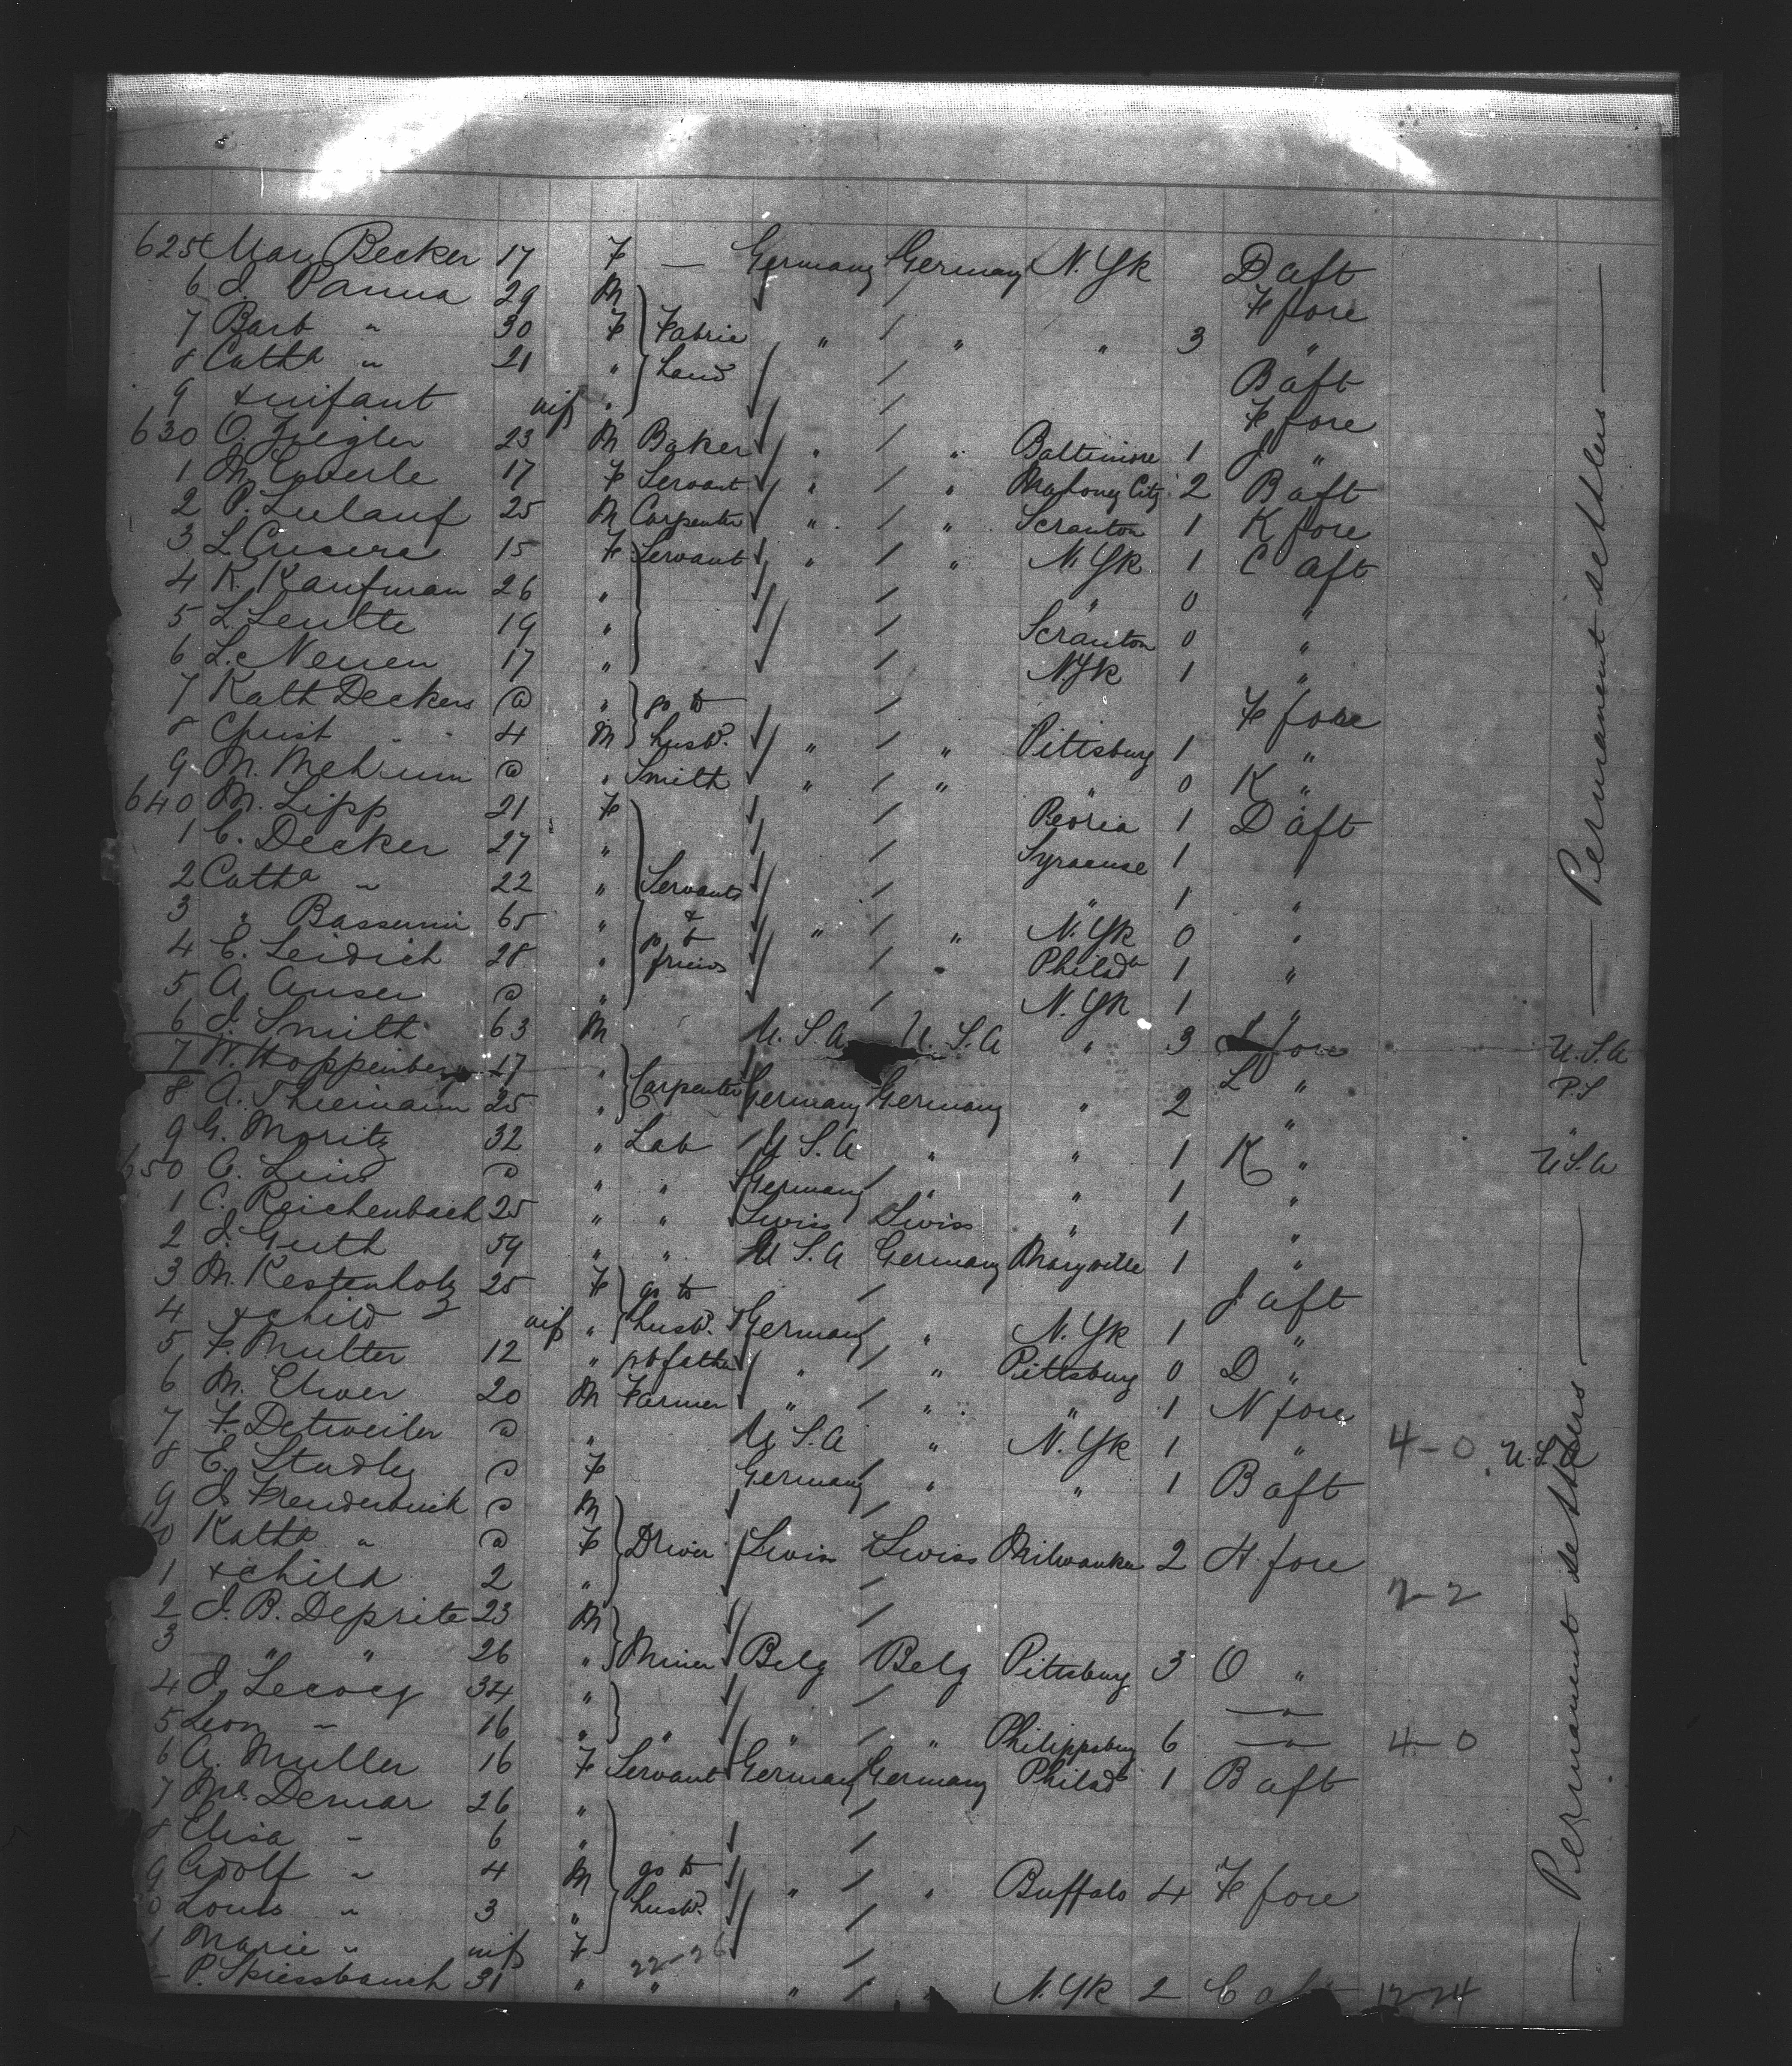 625 Mary Becker 17 F — Germany Germany N.Yk D aft
6 J. Panna 29 M F fore
7 Barb " 30 F Fabric " / " " 3 "
8 Catha " 21 " hand / B aft
9 + infant inf " / F fore
630 O. Ziegler 23 M Baker " / " Baltimore 1 J "
1 M. 17 F Servant " / " Mahony City 2 B aft
2 P. Lulauf 25 M Carpenter " / " Scranton 1 K fore
3 L. 15 F Servant " / " N.Yk 1 C aft
4 K. Kaufman 26 " / " 0 "
5 L. 19 " / Scranton 0 "
6 L. Neuen 17 " / N.Yk 1 "
7 Kath Deckers @ " go to / F fore
8 Christ " 4 M husb. " / " Pittsburg 1 "
9 M. @ " Smith " / " " 0 K "
640 M. Lipp 21 F / Peoria 1 D aft
1 C. Decker 27 " / Syracuse 1 "
2 Catha " 22 " Servants / " 1 "
3 " 65 " + " / " N.Yk 0 "
4 E. Leidich 28 " go to friends / " Philada 1 "
5 A. Auser @ " / N.Yk 1 "
6 J. Smith 63 M U.S.A U.S.A " 3 fore U.S.A
7 W. 17 " L " P.S
8 A. Thiemann 25 " Carpenter Germany Germany " 2 " "
9 G. Moritz 32 " Lab / U.S.A " " 1 K " U.S.A
650 A. @ " " Germany / " " 1 "
1 C. Reichenbach 25 " " Swiss Swiss " 1 "
2 J. Guth 59 " " U.S.A Germany Maryville 1 "
3 M. Kestenholz 25 F go to / J aft
4 + child inf " husb. Germany / " N.Yk 1 "
5 F. Multer 12 " go to father " / " Pittsburg 0 D "
6 M. 20 M Farmer " / " " 1 N fore
7 F. Detweiler @ " U.S.A " N.Yk 1 " 4-0 U.S.A
8 E. Studley @ F Germany / " " 1 B aft
9 J. @ M /
0 Katha " @ F Driver Swiss Swiss Milwaukee 2 H fore
1 + child 2 " / 2-2
2 J. B. Deprite 23 M /
3 " " 26 " Miner Belg / Belg Pittsburg 3 O "
4 J. Lecocq 34 " / "
5 Leon " 16 " " " / " Philippsburg 6 " 4-0
6 A. Muller 16 F Servant Germany Germany Philada 1 B aft
7 Demar 26 " /
8 Elisa " 6 " /
9 Adolf " 4 M go to " / " Buffalo 4 F fore
0 Louis " 3 " husb. /
1 Marie " inf F 22-26 /
P. Spiessbauch 31 " " " / " N.Yk 2 C aft 12-24
— Permanent settlers —
— Permanent settlers —